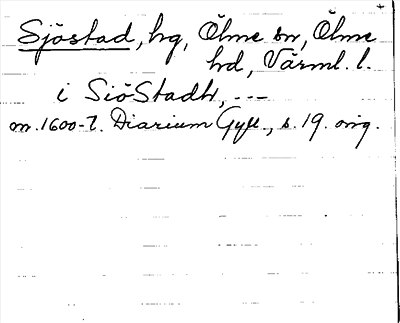 Sjöstad, hg, Ölme sn, Ölme
hd, Värml. l.
i SiöStadh, ---
m. 1600-t. Diarium Gyll., s. 19. orig.